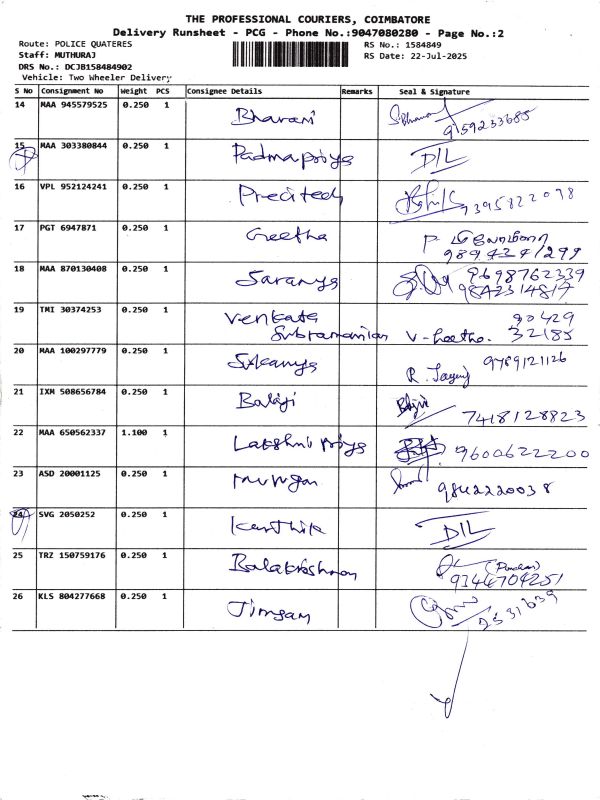 THE PROFESSIONAL COURIERS, COIMBATORE
Delivery Runsheet - PCG - Phone No.:9047080280 - Page No.:2
Route: POLICE QUATERES
RS No.: 1584849
Staff: MUTHURAJ
RS Date: 22-Jul-2025
DRS No.: DCJB158484902
Vehicle: Two Wheeler Delivery
S No Consignment No Weight PCS Consignee Details Remarks Seal & Signature
14 MAA 945579525 0.250 1 Bharani 9159233685
15 MAA 303380844 0.250 1 Padmapriya D/L
16 VPL 952124241 0.250 1 Precitech 9395822098
17 PGT 6947871 0.250 1 Geetha
9894341299
18 MAA 870130408 0.250 1 Saranya 9698762339
9842314817
19 TMI 30374253 0.250 1 Venkata 90429
Subramanian 32185
20 MAA 100297779 0.250 1 Sukanya 9789121126
21 IXM 508656784 0.250 1 Balaji 7418128823
22 MAA 650562337 1.100 1 Lakshmi priya 9600622200
23 ASD 20001125 0.250 1 Murugan 9842220038
24 SVG 2050252 0.250 1 Karthik D/L
25 TRZ 150759176 0.250 1 Balakrishnan
9344704251
26 KLS 804277668 0.250 1 Jimsan